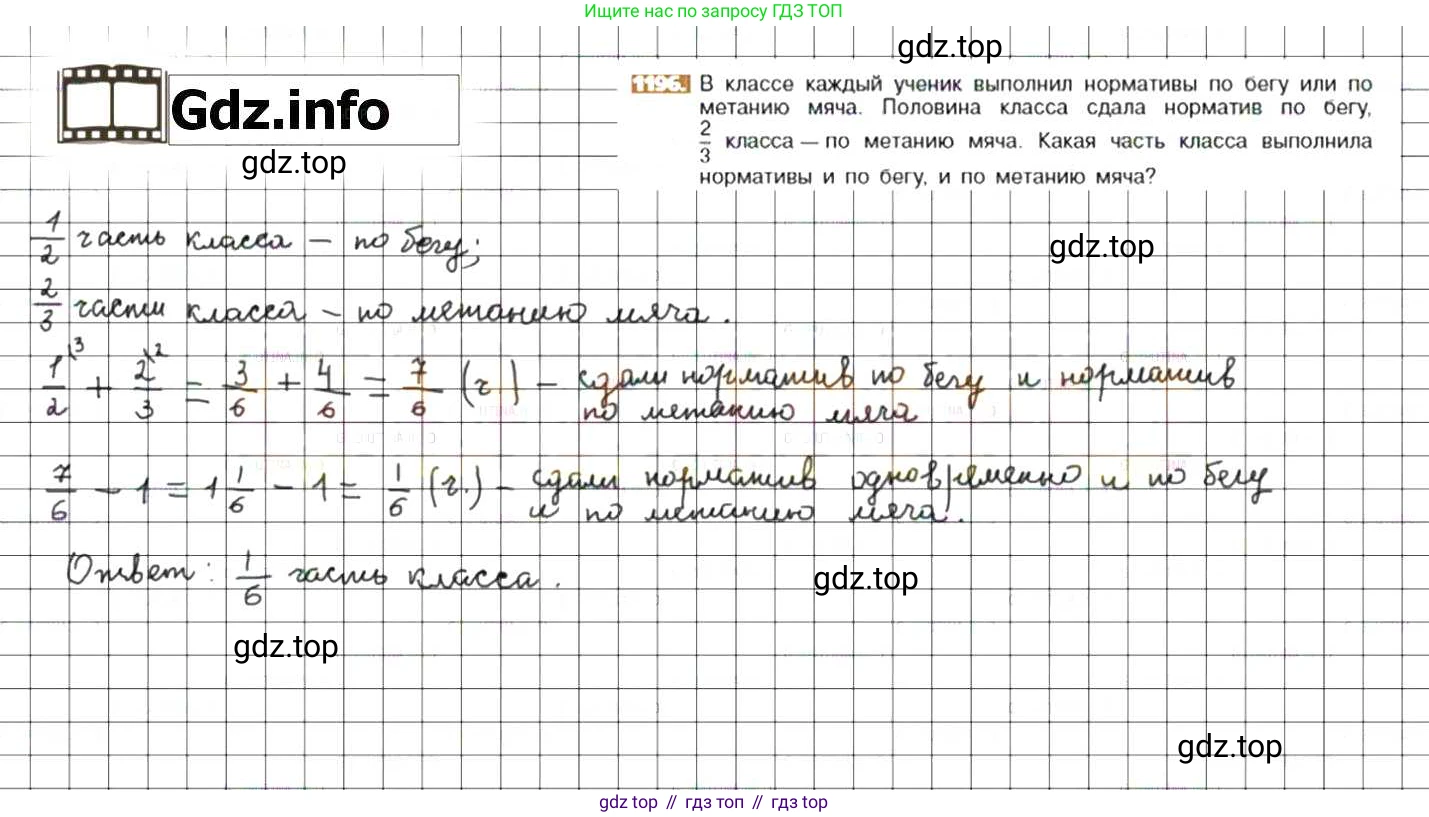 Ищите нас по запросу ГДЗ ТОП
gdz.top
Gdz.info
gdz.top
1196. В классе каждый ученик выполнил нормативы по бегу или по
метанию мяча. Половина класса сдала норматив по бегу,
2/3 класса — по метанию мяча. Какая часть класса выполнила
нормативы и по бегу, и по метанию мяча?
1/2 часть класса – по бегу;
gdz.top
2/3 части класса – по метанию мяча.
1/2\3 + 2/3\2 = 3/6 + 4/6 = 7/6 (ч.) – сдали норматив по бегу и норматив
по метанию мяча
7/6 - 1 = 1 1/6 - 1 = 1/6 (ч.) – сдали норматив одновременно и по бегу
и по метанию мяча.
Ответ: 1/6 часть класса.
gdz.top
gdz.top
gdz.top
gdz top // гдз топ // gdz.top